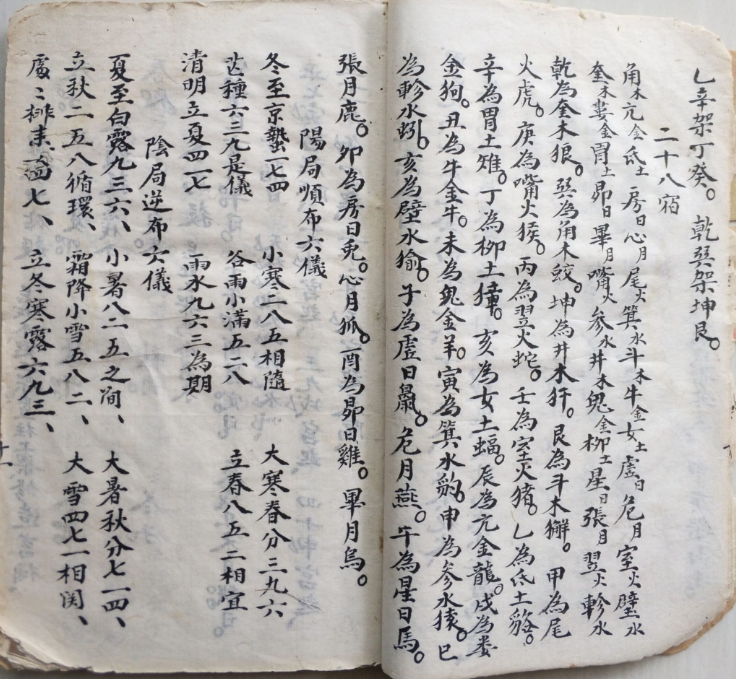 乙辛架丁癸。乾巽架坤艮。
二十八宿
角木亢金氐土房日心月尾火箕水斗木牛金女土虚日危月室火壁水
奎木婁金胃土昴日畢月嘴火参水井木鬼金柳土星日張月翌火軫水
乾為奎木狼。巽為角木蛟。坤為井木犴。艮為斗木獬。甲為尾
火虎。庚為嘴火猴。丙為翌火蛇。壬為室火猪。乙為氐土貉。
辛為胃土雉。丁為柳土獐。亥為女土蝠。辰為亢金龍。戌為婁
金狗。丑為牛金牛。未為鬼金羊。寅為箕水豹。申為参水猿。巳
為軫水蚓。亥為壁水貐。子為虚日鼠。危月燕。午為星日馬。
張月鹿。卯為房日兎。心月狐。酉為昴日雞。畢月烏。
陽局順布六儀
冬至京蟄一七四 小寒二八五相隨 大寒春分三九六
芒種六三九是儀 谷雨小滿五二八 立春八五二相宜
清明立夏四一七 雨水九六三為期
陰局逆布六儀
夏至白露九三六、小暑八二五之间、大暑秋分七一四、
立秋二五八循環、霜降小雪五八二、大雪四七一相関、
處々排来一四七、立冬寒露六九三、
十一